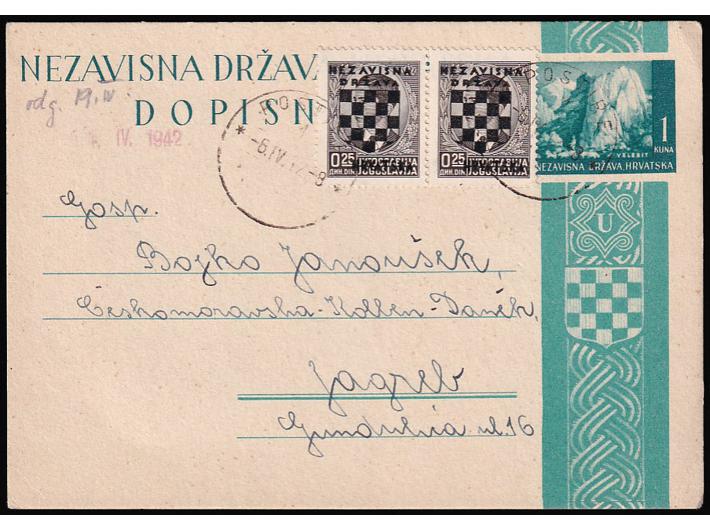 NEZAVISNA DRŽAV
DOPISN
odg. 19. IV
IV. 1942
NEZAVISNA
DRŽAVA
0.25
ДИН. DIN.
ЈУГОСЛАВИЈА
JUGOSLAVIJA
NEZAVISNA
DRŽAVA
0.25
ДИН. DIN.
ЈУГОСЛАВИЈА
JUGOSLAVIJA
1
KUNA
VELEBIT
NEZAVISNA DRŽAVA HRVATSKA
U
Gosp.
Bojko Janoušek,
Českomoravska-Kolben-Daněk,
Zagreb
Gundulića ul. 16